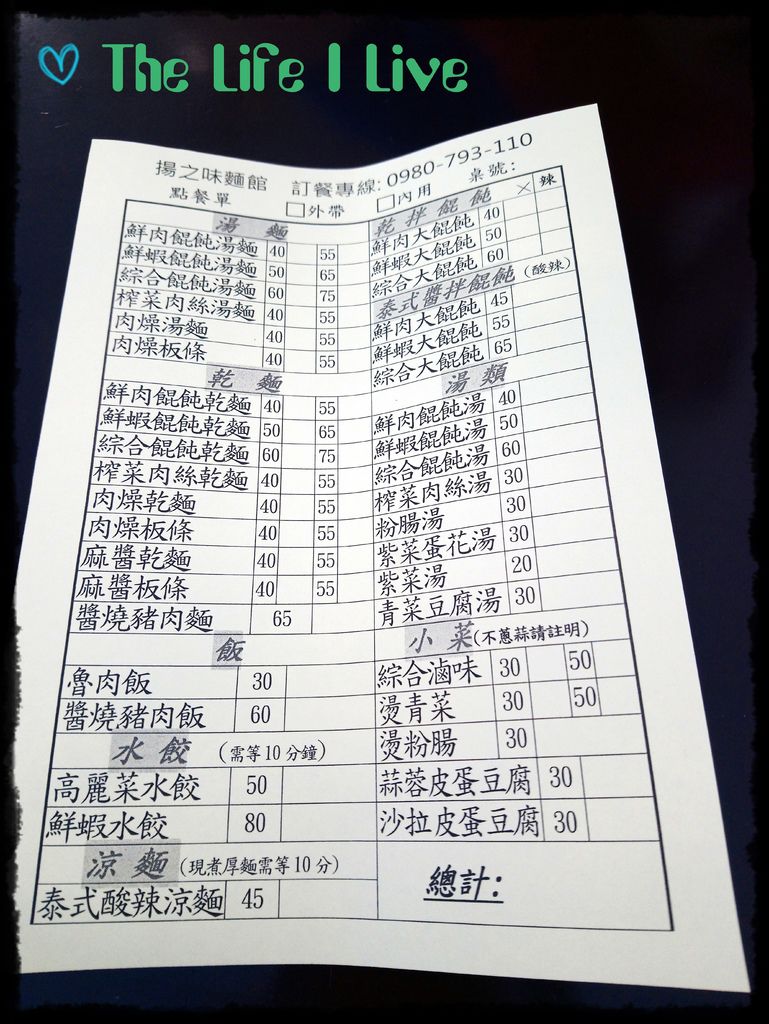 The Life I Live
揚之味麵館 訂餐專線: 0980-793-110
點餐單 □外帶 □內用 桌號:
湯麵
鮮肉餛飩湯麵 40 55
鮮蝦餛飩湯麵 50 65
綜合餛飩湯麵 60 75
榨菜肉絲湯麵 40 55
肉燥湯麵 40 55
肉燥板條 40 55
乾麵
鮮肉餛飩乾麵 40 55
鮮蝦餛飩乾麵 50 65
綜合餛飩乾麵 60 75
榨菜肉絲乾麵 40 55
肉燥乾麵 40 55
肉燥板條 40 55
麻醬乾麵 40 55
麻醬板條 40 55
醬燒豬肉麵 65
飯
魯肉飯 30
醬燒豬肉飯 60
水餃 (需等10分鐘)
高麗菜水餃 50
鮮蝦水餃 80
涼麵 (現煮厚麵需等10分)
泰式酸辣涼麵 45
乾拌餛飩 × 辣
鮮肉大餛飩 40
鮮蝦大餛飩 50
綜合大餛飩 60
泰式醬拌餛飩 (酸辣)
鮮肉大餛飩 45
鮮蝦大餛飩 55
綜合大餛飩 65
湯類
鮮肉餛飩湯 40
鮮蝦餛飩湯 50
綜合餛飩湯 60
榨菜肉絲湯 30
粉腸湯 30
紫菜蛋花湯 30
紫菜湯 20
青菜豆腐湯 30
小菜(不蔥蒜請註明)
綜合滷味 30 50
燙青菜 30 50
燙粉腸 30
蒜蓉皮蛋豆腐 30
沙拉皮蛋豆腐 30
總計: